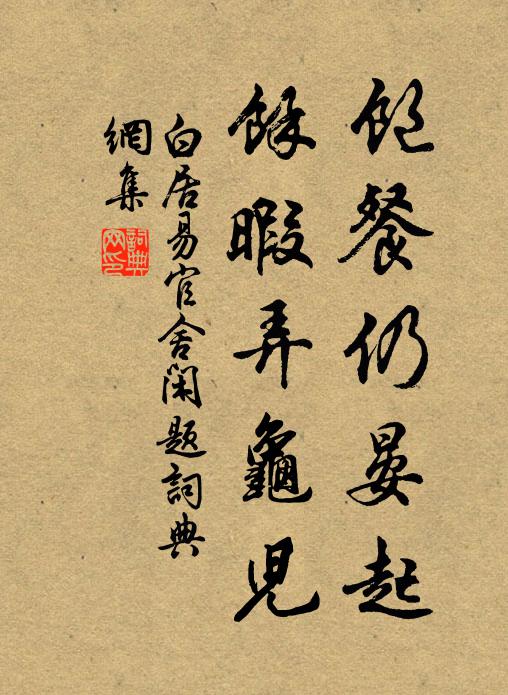 飽餐仍晏起
餘暇弄龜兒
白居易官舍閑題詞典
網集
詞典網印